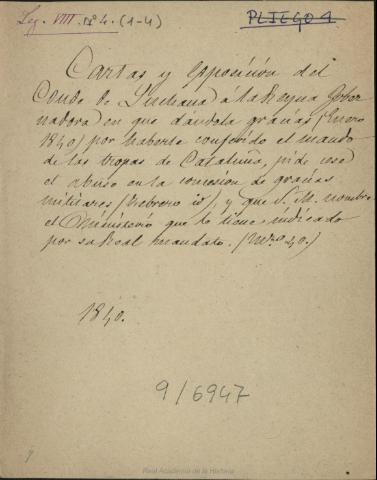 Leg. VIII. nº 4. (1-4)
PLIEGO 4
Cartas y Esposición del
Conde de Luchana á la Reyna Gober
nadora en que dándola gracias (Enero
1840) por haberle conferido el mando
de las tropas de Cataluña, pide cese
el abuso en la concesion de gracias
militares (Febrero id), y que S. M. nombre
el Ministerio que le tiene indicado
por su Real mandato. (Mzo 40.)
1840.
9/6947
Real Academia de la Historia